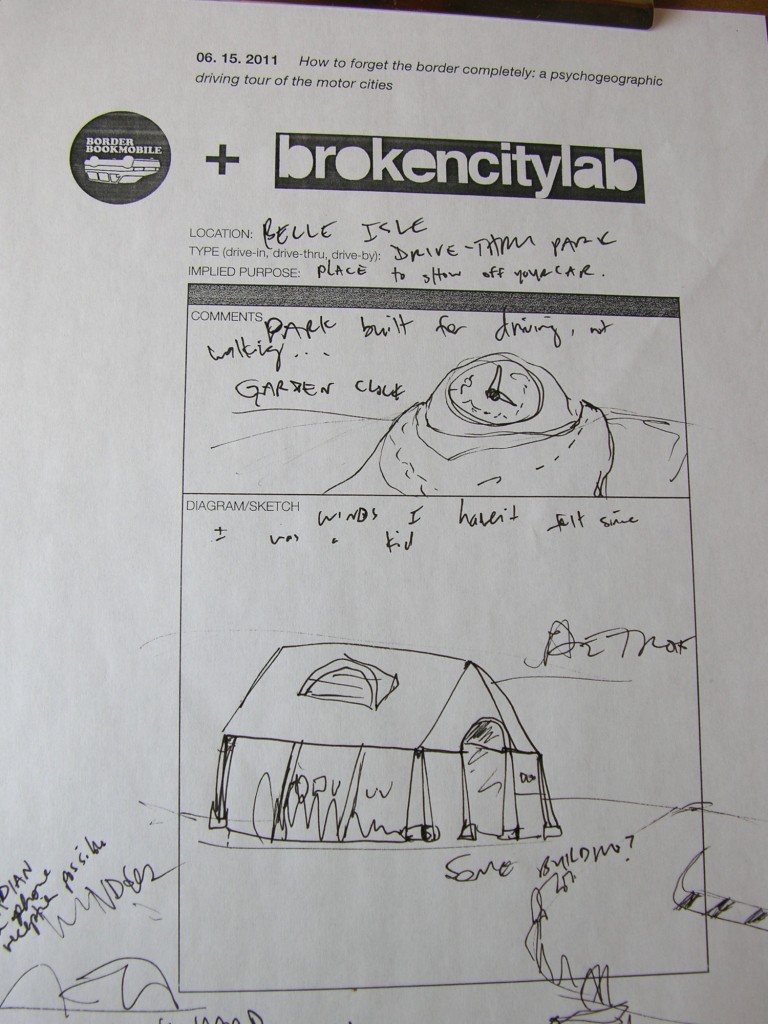 06. 15. 2011 How to forget the border completely: a psychogeographic
driving tour of the motor cities
BORDER
BOOKMOBILE
+ brokencitylab
LOCATION: BELLE ISLE
TYPE (drive-in, drive-thru, drive-by): DRIVE-THRU PARK
IMPLIED PURPOSE: PLACE to show off your CAR.
COMMENTS PARK built for driving, not
walking...
GARDEN CLOCK
DIAGRAM/SKETCH WINDS I haven't felt since
I was a kid
DETROIT
SOME BUILDING?
phone
reception possible
WINDSOR